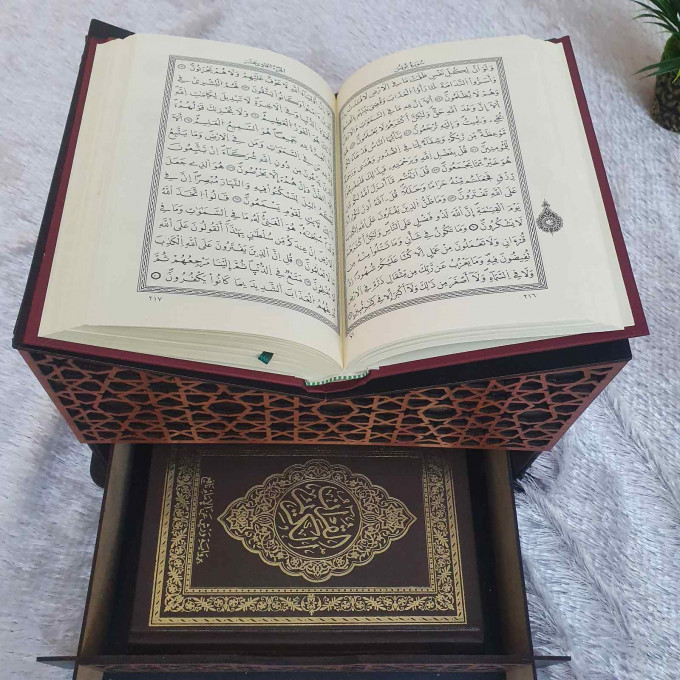 سورة يونس
وَلَوْ أَنَّ لِكُلِّ نَفْسٍ ظَلَمَتْ مَا فِي الْأَرْضِ لَافْتَدَتْ بِهِ
وَأَسَرُّوا النَّدَامَةَ لَمَّا رَأَوُا الْعَذَابَ وَقُضِيَ بَيْنَهُم بِالْقِسْطِ
وَهُمْ لَا يُظْلَمُونَ أَلَا إِنَّ لِلَّهِ مَا فِي السَّمَاوَاتِ وَالْأَرْضِ
أَلَا إِنَّ وَعْدَ اللَّهِ حَقٌّ وَلَكِنَّ أَكْثَرَهُمْ لَا يَعْلَمُونَ هُوَ
يُحْيِي وَيُمِيتُ وَإِلَيْهِ تُرْجَعُونَ يَا أَيُّهَا النَّاسُ قَدْ جَاءَتْكُم
مَّوْعِظَةٌ مِّن رَّبِّكُمْ وَشِفَاءٌ لِّمَا فِي الصُّدُورِ وَهُدًى وَرَحْمَةٌ
لِّلْمُؤْمِنِينَ قُلْ بِفَضْلِ اللَّهِ وَبِرَحْمَتِهِ فَبِذَلِكَ فَلْيَفْرَحُوا
هُوَ خَيْرٌ مِّمَّا يَجْمَعُونَ قُلْ أَرَأَيْتُم مَّا أَنزَلَ اللَّهُ لَكُم مِّن
رِّزْقٍ فَجَعَلْتُم مِّنْهُ حَرَامًا وَحَلَالًا قُلْ آللَّهُ أَذِنَ لَكُمْ أَمْ
عَلَى اللَّهِ تَفْتَرُونَ وَمَا ظَنُّ الَّذِينَ يَفْتَرُونَ عَلَى اللَّهِ الْكَذِبَ
يَوْمَ الْقِيَامَةِ إِنَّ اللَّهَ لَذُو فَضْلٍ عَلَى النَّاسِ وَلَكِنَّ أَكْثَرَهُمْ
لَا يَشْكُرُونَ وَمَا تَكُونُ فِي شَأْنٍ وَمَا تَتْلُو مِنْهُ مِن
قُرْآنٍ وَلَا تَعْمَلُونَ مِنْ عَمَلٍ إِلَّا كُنَّا عَلَيْكُمْ شُهُودًا إِذْ
تُفِيضُونَ فِيهِ وَمَا يَعْزُبُ عَن رَّبِّكَ مِن مِّثْقَالِ ذَرَّةٍ فِي الْأَرْضِ
وَلَا فِي السَّمَاءِ وَلَا أَصْغَرَ مِن ذَلِكَ وَلَا أَكْبَرَ إِلَّا فِي كِتَابٍ مُّبِينٍ
٢١٦
الجزء الحادي عشر
أَلَا إِنَّ أَوْلِيَاءَ اللَّهِ لَا خَوْفٌ عَلَيْهِمْ وَلَا هُمْ يَحْزَنُونَ
الَّذِينَ آمَنُوا وَكَانُوا يَتَّقُونَ لَهُمُ الْبُشْرَى فِي
الْحَيَاةِ الدُّنْيَا وَفِي الْآخِرَةِ لَا تَبْدِيلَ لِكَلِمَاتِ اللَّهِ
ذَلِكَ هُوَ الْفَوْزُ الْعَظِيمُ وَلَا يَحْزُنكَ قَوْلُهُمْ
إِنَّ الْعِزَّةَ لِلَّهِ جَمِيعًا هُوَ السَّمِيعُ الْعَلِيمُ
أَلَا إِنَّ لِلَّهِ مَن فِي السَّمَاوَاتِ وَمَن فِي الْأَرْضِ وَمَا يَتَّبِعُ
الَّذِينَ يَدْعُونَ مِن دُونِ اللَّهِ شُرَكَاءَ إِن يَتَّبِعُونَ
إِلَّا الظَّنَّ وَإِنْ هُمْ إِلَّا يَخْرُصُونَ هُوَ الَّذِي جَعَلَ
لَكُمُ اللَّيْلَ لِتَسْكُنُوا فِيهِ وَالنَّهَارَ مُبْصِرًا إِنَّ فِي
ذَلِكَ لَآيَاتٍ لِّقَوْمٍ يَسْمَعُونَ قَالُوا اتَّخَذَ اللَّهُ
وَلَدًا سُبْحَانَهُ هُوَ الْغَنِيُّ لَهُ مَا فِي السَّمَاوَاتِ وَمَا فِي
الْأَرْضِ إِنْ عِندَكُم مِّن سُلْطَانٍ بِهَذَا أَتَقُولُونَ عَلَى اللَّهِ
مَا لَا تَعْلَمُونَ قُلْ إِنَّ الَّذِينَ يَفْتَرُونَ عَلَى اللَّهِ الْكَذِبَ
لَا يُفْلِحُونَ مَتَاعٌ فِي الدُّنْيَا ثُمَّ إِلَيْنَا مَرْجِعُهُمْ ثُمَّ
نُذِيقُهُمُ الْعَذَابَ الشَّدِيدَ بِمَا كَانُوا يَكْفُرُونَ
٢١٧